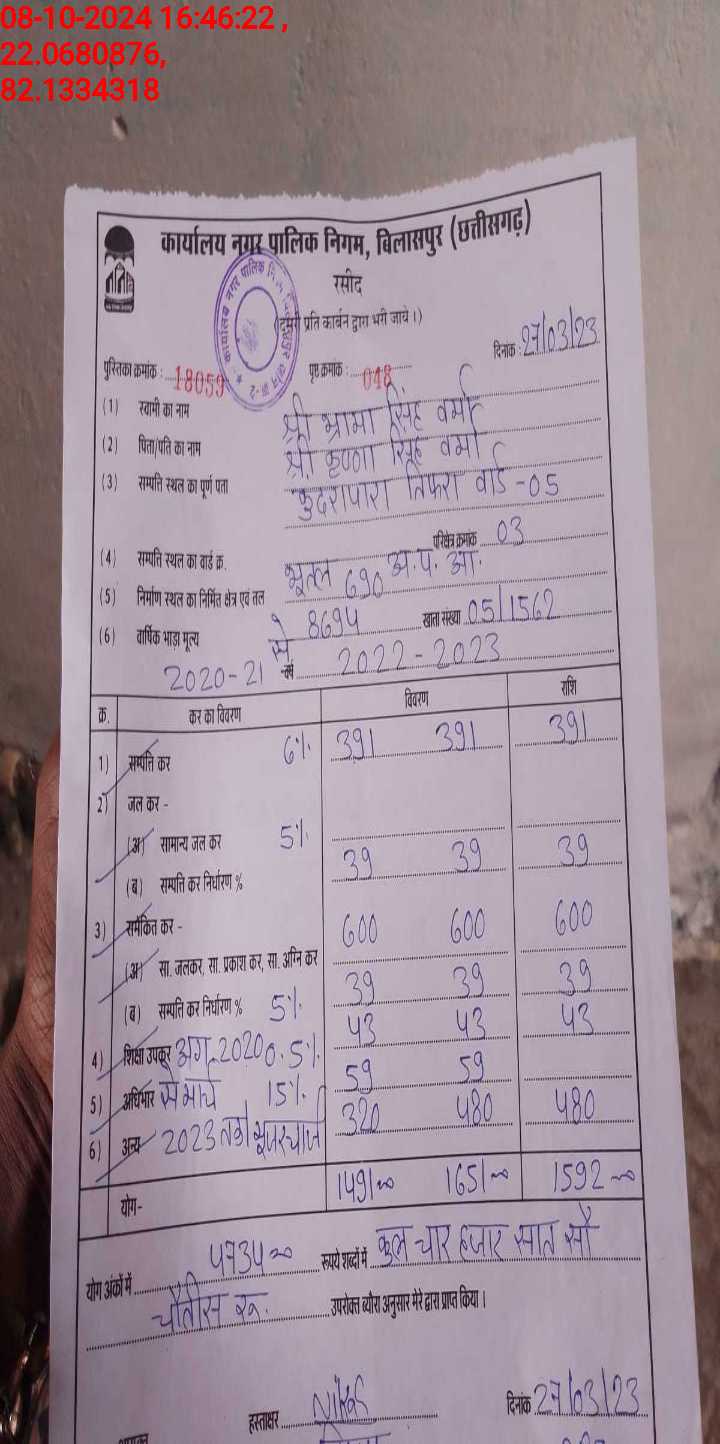 08-10-2024 16:46:22 ,
22.0680876,
82.1334318
कार्यालय नगर पालिक निगम, बिलासपुर (छत्तीसगढ़)
रसीद
(दूसरी प्रति कार्बन द्वारा भरी जावे।)
दिनांक : 27/03/23
पुस्तिका क्रमांक : 18059 पृष्ठ क्रमांक : 048
(1) स्वामी का नाम श्री भ्रामा सिंह वर्मा
(2) पिता/पति का नाम श्री कृष्णा सिंह वर्मा
(3) सम्पत्ति स्थल का पूर्ण पता कुदरापारा तिफरा वार्ड -05
(4) सम्पत्ति स्थल का वार्ड क्र. परिक्षेत्र क्रमांक 03
(5) निर्माण स्थल का निर्मित क्षेत्र एवं तल भूतल 690 अ.प. आ.
(6) वार्षिक भाड़ा मूल्य 8694 खाता संख्या 05/1562
2020-21 से वर्ष 2022-2023
क्र. कर का विवरण विवरण राशि
1) सम्पत्ति कर 6% 391 391 391
2) जल कर -
(अ) सामान्य जल कर 5%
(ब) सम्पत्ति कर निर्धारण % 39 39 39
3) समेकित कर - 600 600 600
(अ) सा. जलकर, सा. प्रकाश कर, सा. अग्नि कर
(ब) सम्पत्ति कर निर्धारण % 5% 39 39 39
4) शिक्षा उपकर अग.2020 0.5% 43 43 43
5) अधिभार से मार्च 15% 59 59
6) अन्य 2023 तक यूजर चार्ज 320 480 480
योग- 1491 1651 1592
योग अंकों में 4734 रूपये शब्दों में कुल चार हजार सात सौ
चौंतीस रू. उपरोक्त ब्यौरा अनुसार मेरे द्वारा प्राप्त किया।
हस्ताक्षर दिनांक 27/03/23